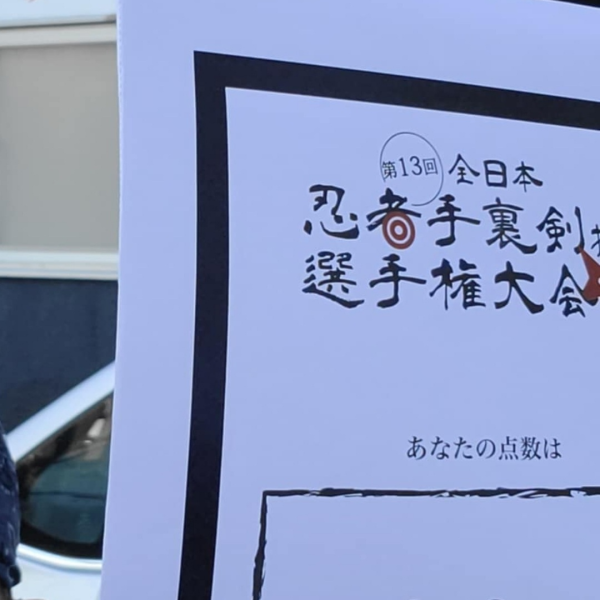 第13回 全日本
忍者手裏剣
選手権大会
あなたの点数は